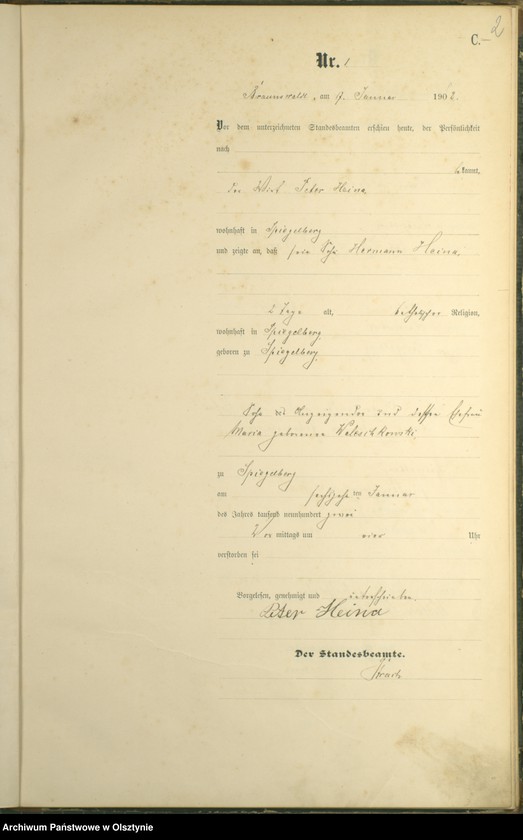 2
C.
Nr. 1
Braunswalde, am 17. Januar 1902.
Vor dem unterzeichneten Standesbeamten erschien heute, der Persönlichkeit
nach
bekannt,
der Wirt Peter Heina
wohnhaft in Spiegelberg
und zeigte an, daß sein Sohn Hermann Heina,
2 Tage alt, katholischer Religion,
wohnhaft in Spiegelberg
geboren zu Spiegelberg,
Sohn des Anzeigenden und dessen Ehefrau
Maria geborenen
zu Spiegelberg
am sechszehnten Januar
des Jahres tausend neunhundert zwei
Vor mittags um vier Uhr
verstorben sei
Vorgelesen, genehmigt und unterschrieben.
Peter Heina
Der Standesbeamte.
Archiwum Państwowe w Olsztynie